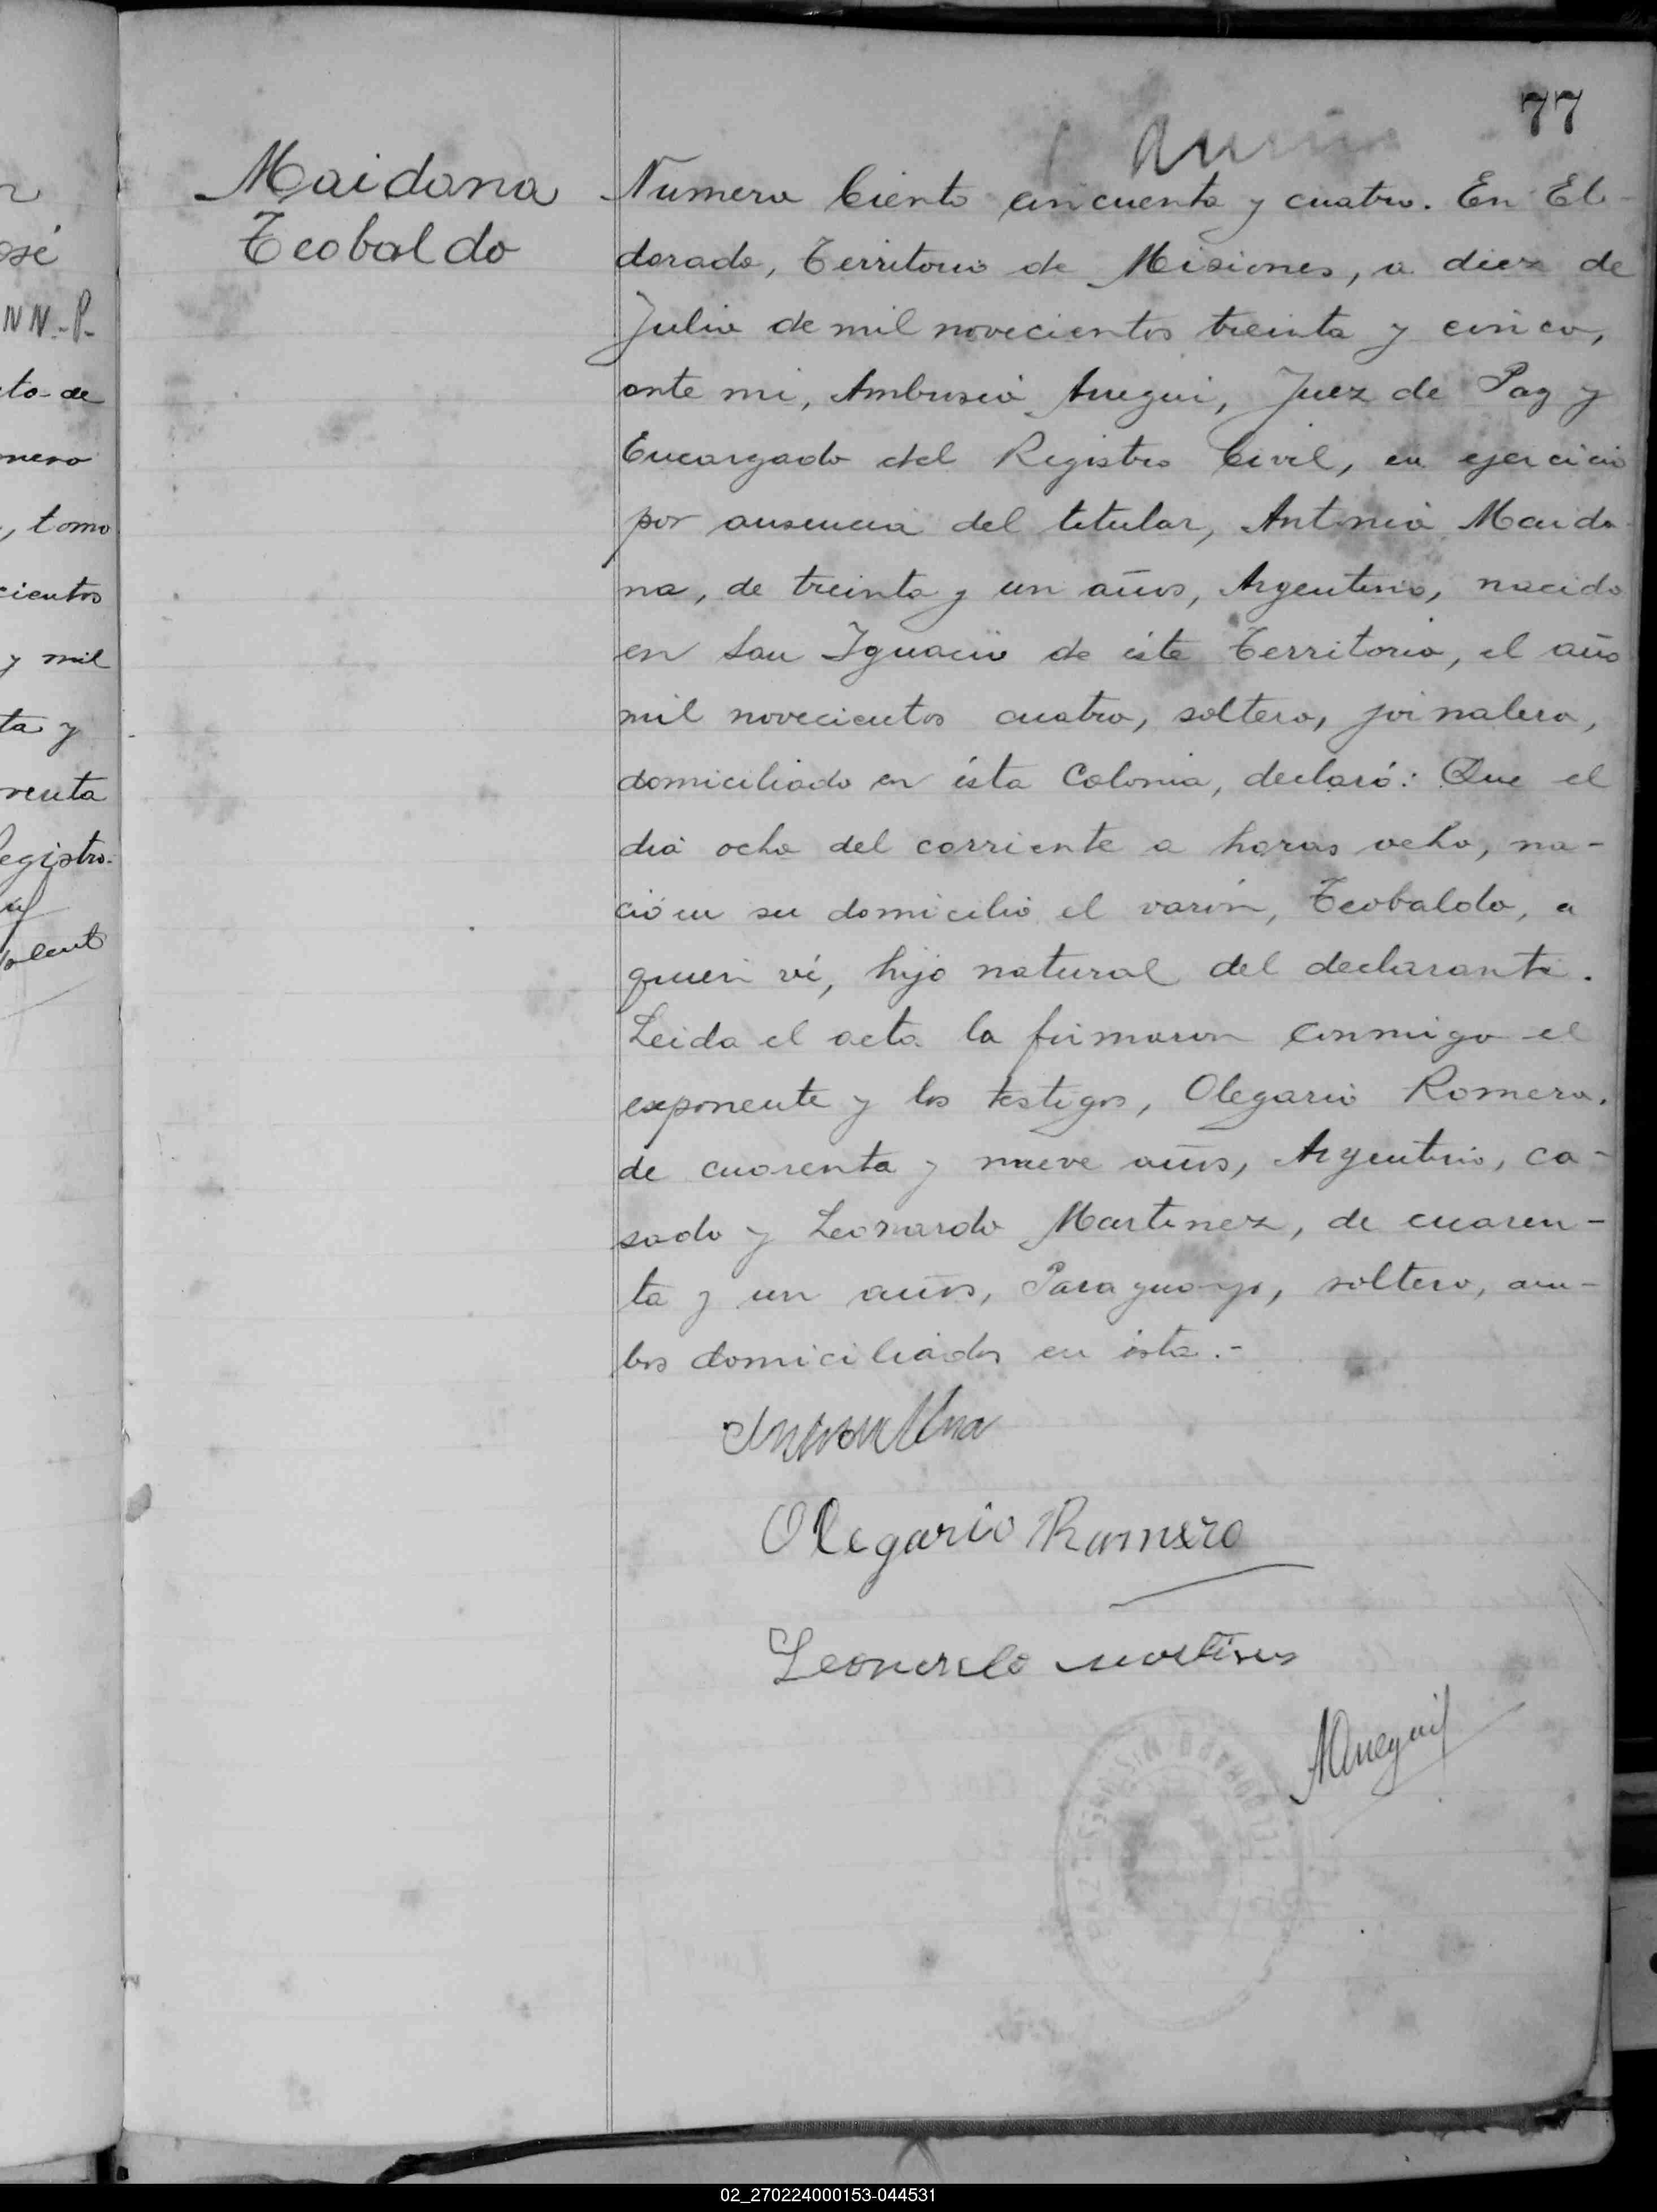 77
Maidana
Teobaldo
Numero Ciento cincuenta y cuatro. En El-
dorado, Territorio de Misiones, a diez de
Julio de mil novecientos treinta y cinco,
ante mi, Ambrosio Amegui, Juez de Paz y
Encargado del Registro Civil, en ejercicio
por ausencia del titular, Antonio Maida-
na, de treinta y un años, Argentino, nacido
en San Ignacio de éste Territorio, el año
mil novecientos cuatro, soltero, jornalero,
domiciliado en ésta Colonia, declaró: Que el
dia ocho del corriente a horas ocho, na-
ció en su domicilio el varón, Teobaldo, a
quien ví, hijo natural del declarante.
Leida el acta la firmaron conmigo el
exponente y los testigos, Olegario Romero,
de cuarenta y nueve años, Argentino, ca-
sado y Leonardo Martinez, de cuaren-
ta y un años, Paraguayo, soltero, am-
bos domiciliados en ésta.-
Olegario Romero
Leonardo Martines
PAZ
MISIONES
ELDORADO
osé
NN.-P-
to de
mero
, tomo
cientos
y mil
ta y
renta
egistro.
02_270224000153-044531